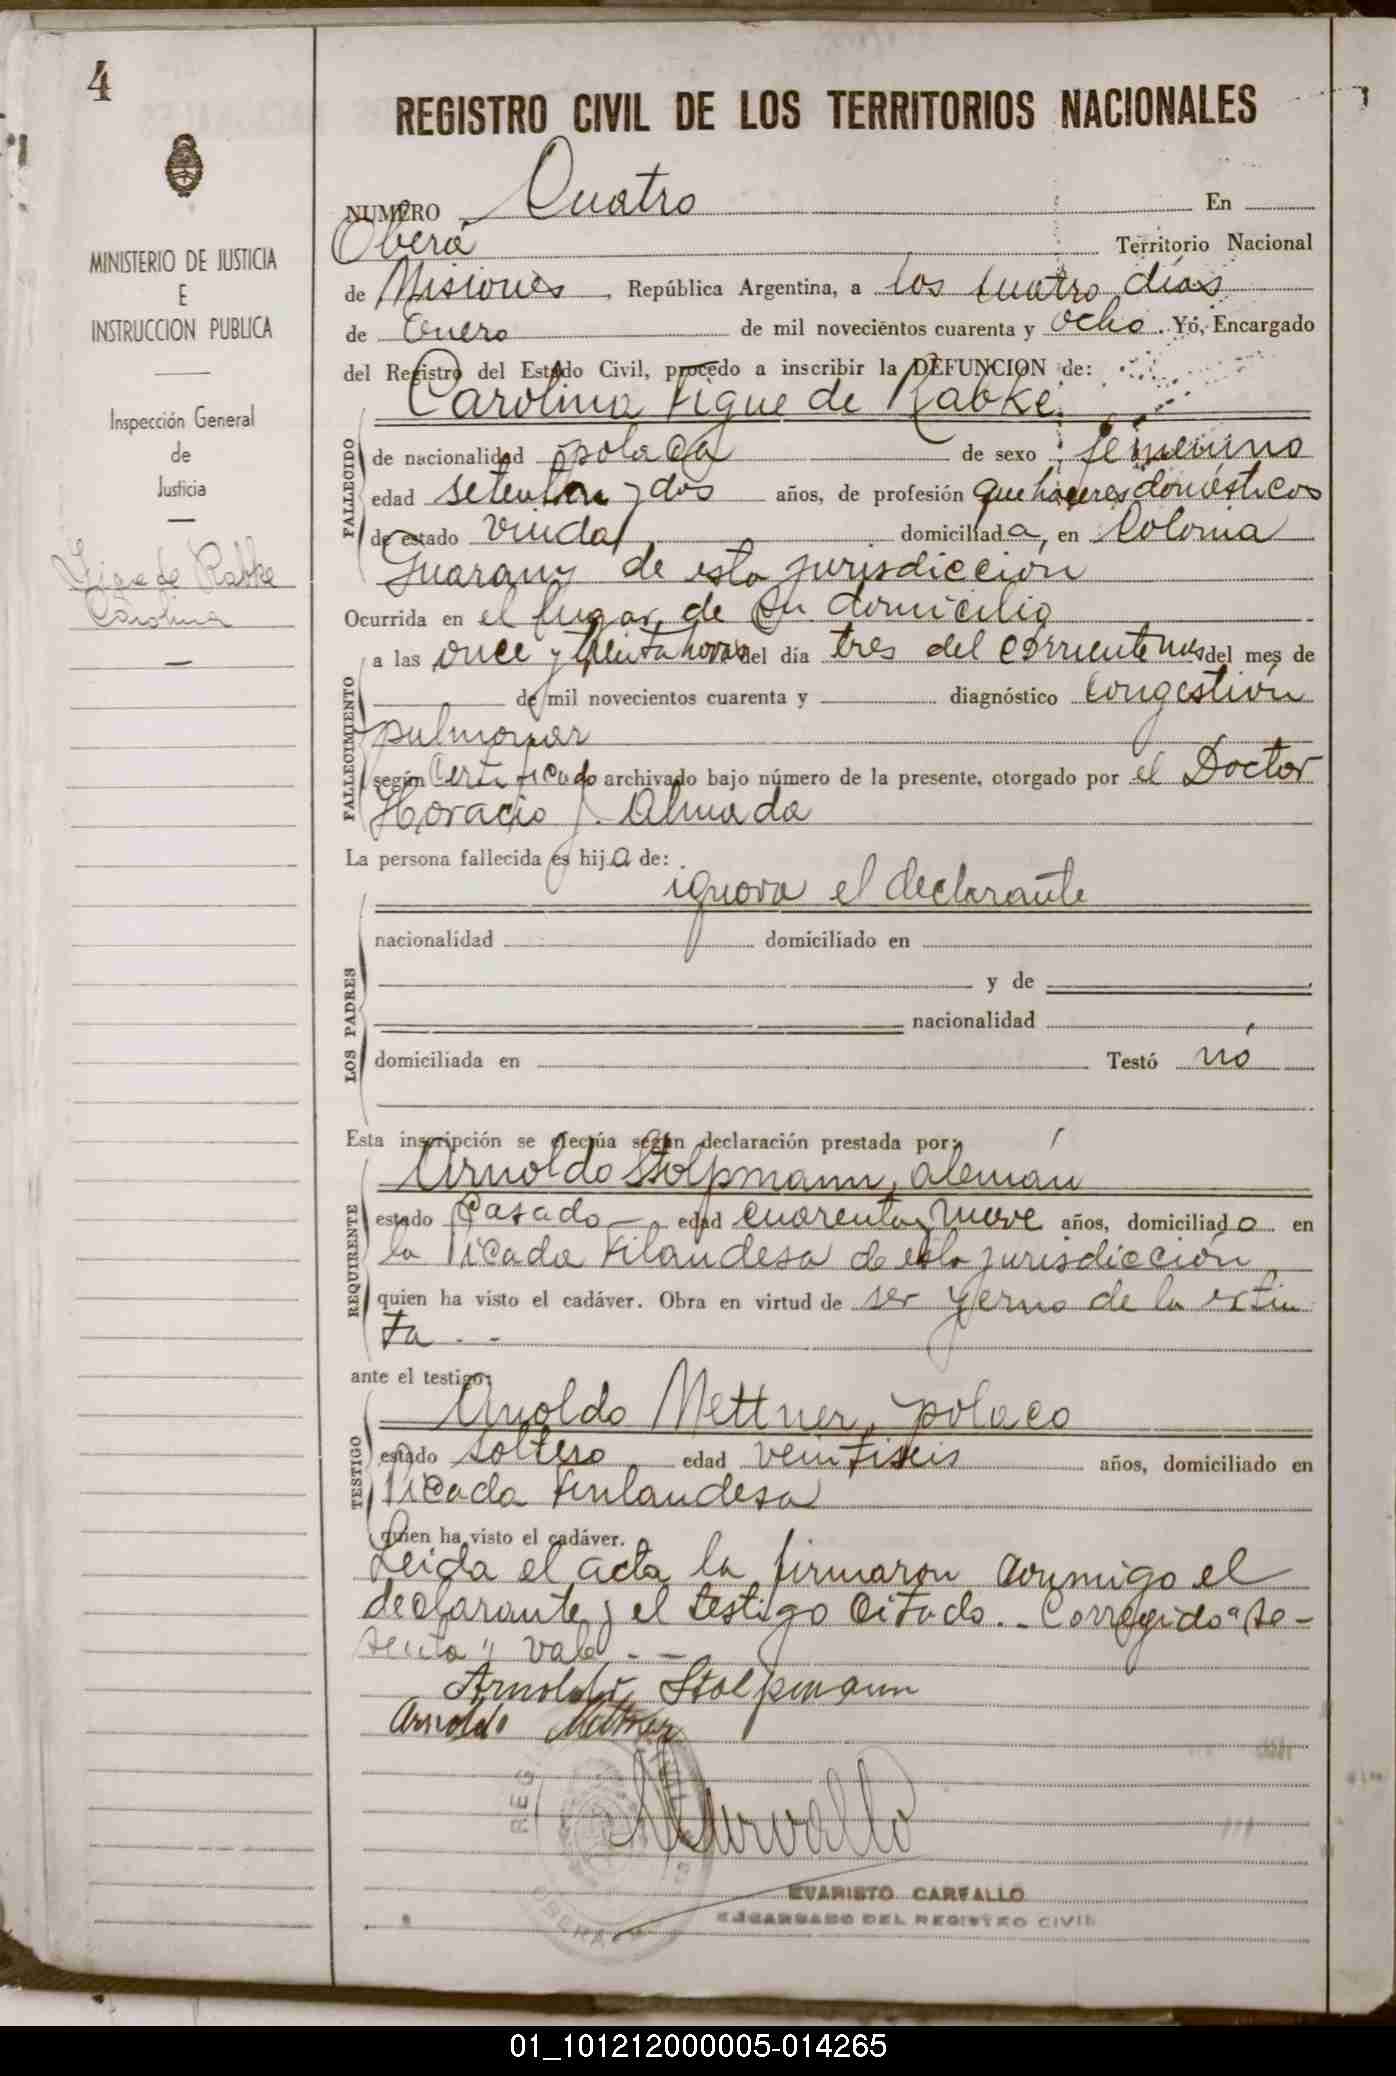 4
REGISTRO CIVIL DE LOS TERRITORIOS NACIONALES
MINISTERIO DE JUSTICIA
E
INSTRUCCION PUBLICA
Inspección General
de
Justicia
de Rabke
Carolina
NUMERO Cuatro En
Oberá Territorio Nacional
de Misiones, República Argentina, a los cuatro días
de Enero de mil novecientos cuarenta y ocho. Yó, Encargado
del Registro del Estado Civil, procedo a inscribir la DEFUNCION de:
Carolina Figue de Rabke
FALLECIDO
de nacionalidad polaca de sexo femenino
edad setenta y dos años, de profesión quehaceres domésticos
de estado viuda domiciliada, en Colonia
Guarany de esta jurisdicción
Ocurrida en el lugar de su domicilio
FALLECIMIENTO
a las once y treinta horas del día tres del corriente mes del mes de
de mil novecientos cuarenta y diagnóstico congestión
pulmonar
según Certificado archivado bajo número de la presente, otorgado por el Doctor
Horacio J. Almada
La persona fallecida es hija de:
ignora el declarante
LOS PADRES
nacionalidad domiciliado en
y de
nacionalidad
domiciliada en Testó nó
Esta inscripción se efectúa según declaración prestada por:
Arnoldo Stolpmann, alemán
REQUIRENTE
estado Casado edad cuarenta y nueve años, domiciliado en
la Picada Filandesa de esta jurisdicción
quien ha visto el cadáver. Obra en virtud de ser yerno de la extin
ta
ante el testigo:
Arnoldo Mettner, polaco
TESTIGO
estado soltero edad veintiseis años, domiciliado en
Picada Finlandesa
quien ha visto el cadáver.
Leida el acta la firmaron conmigo el
declarante y el testigo citado.- Corregido "se-
tenta" vale.-
Arnoldo Stolpmann
Arnoldo Mettner
Carvallo
EVARISTO CARVALLO
ENCARGADO DEL REGISTRO CIVIL
01_101212000005-014265